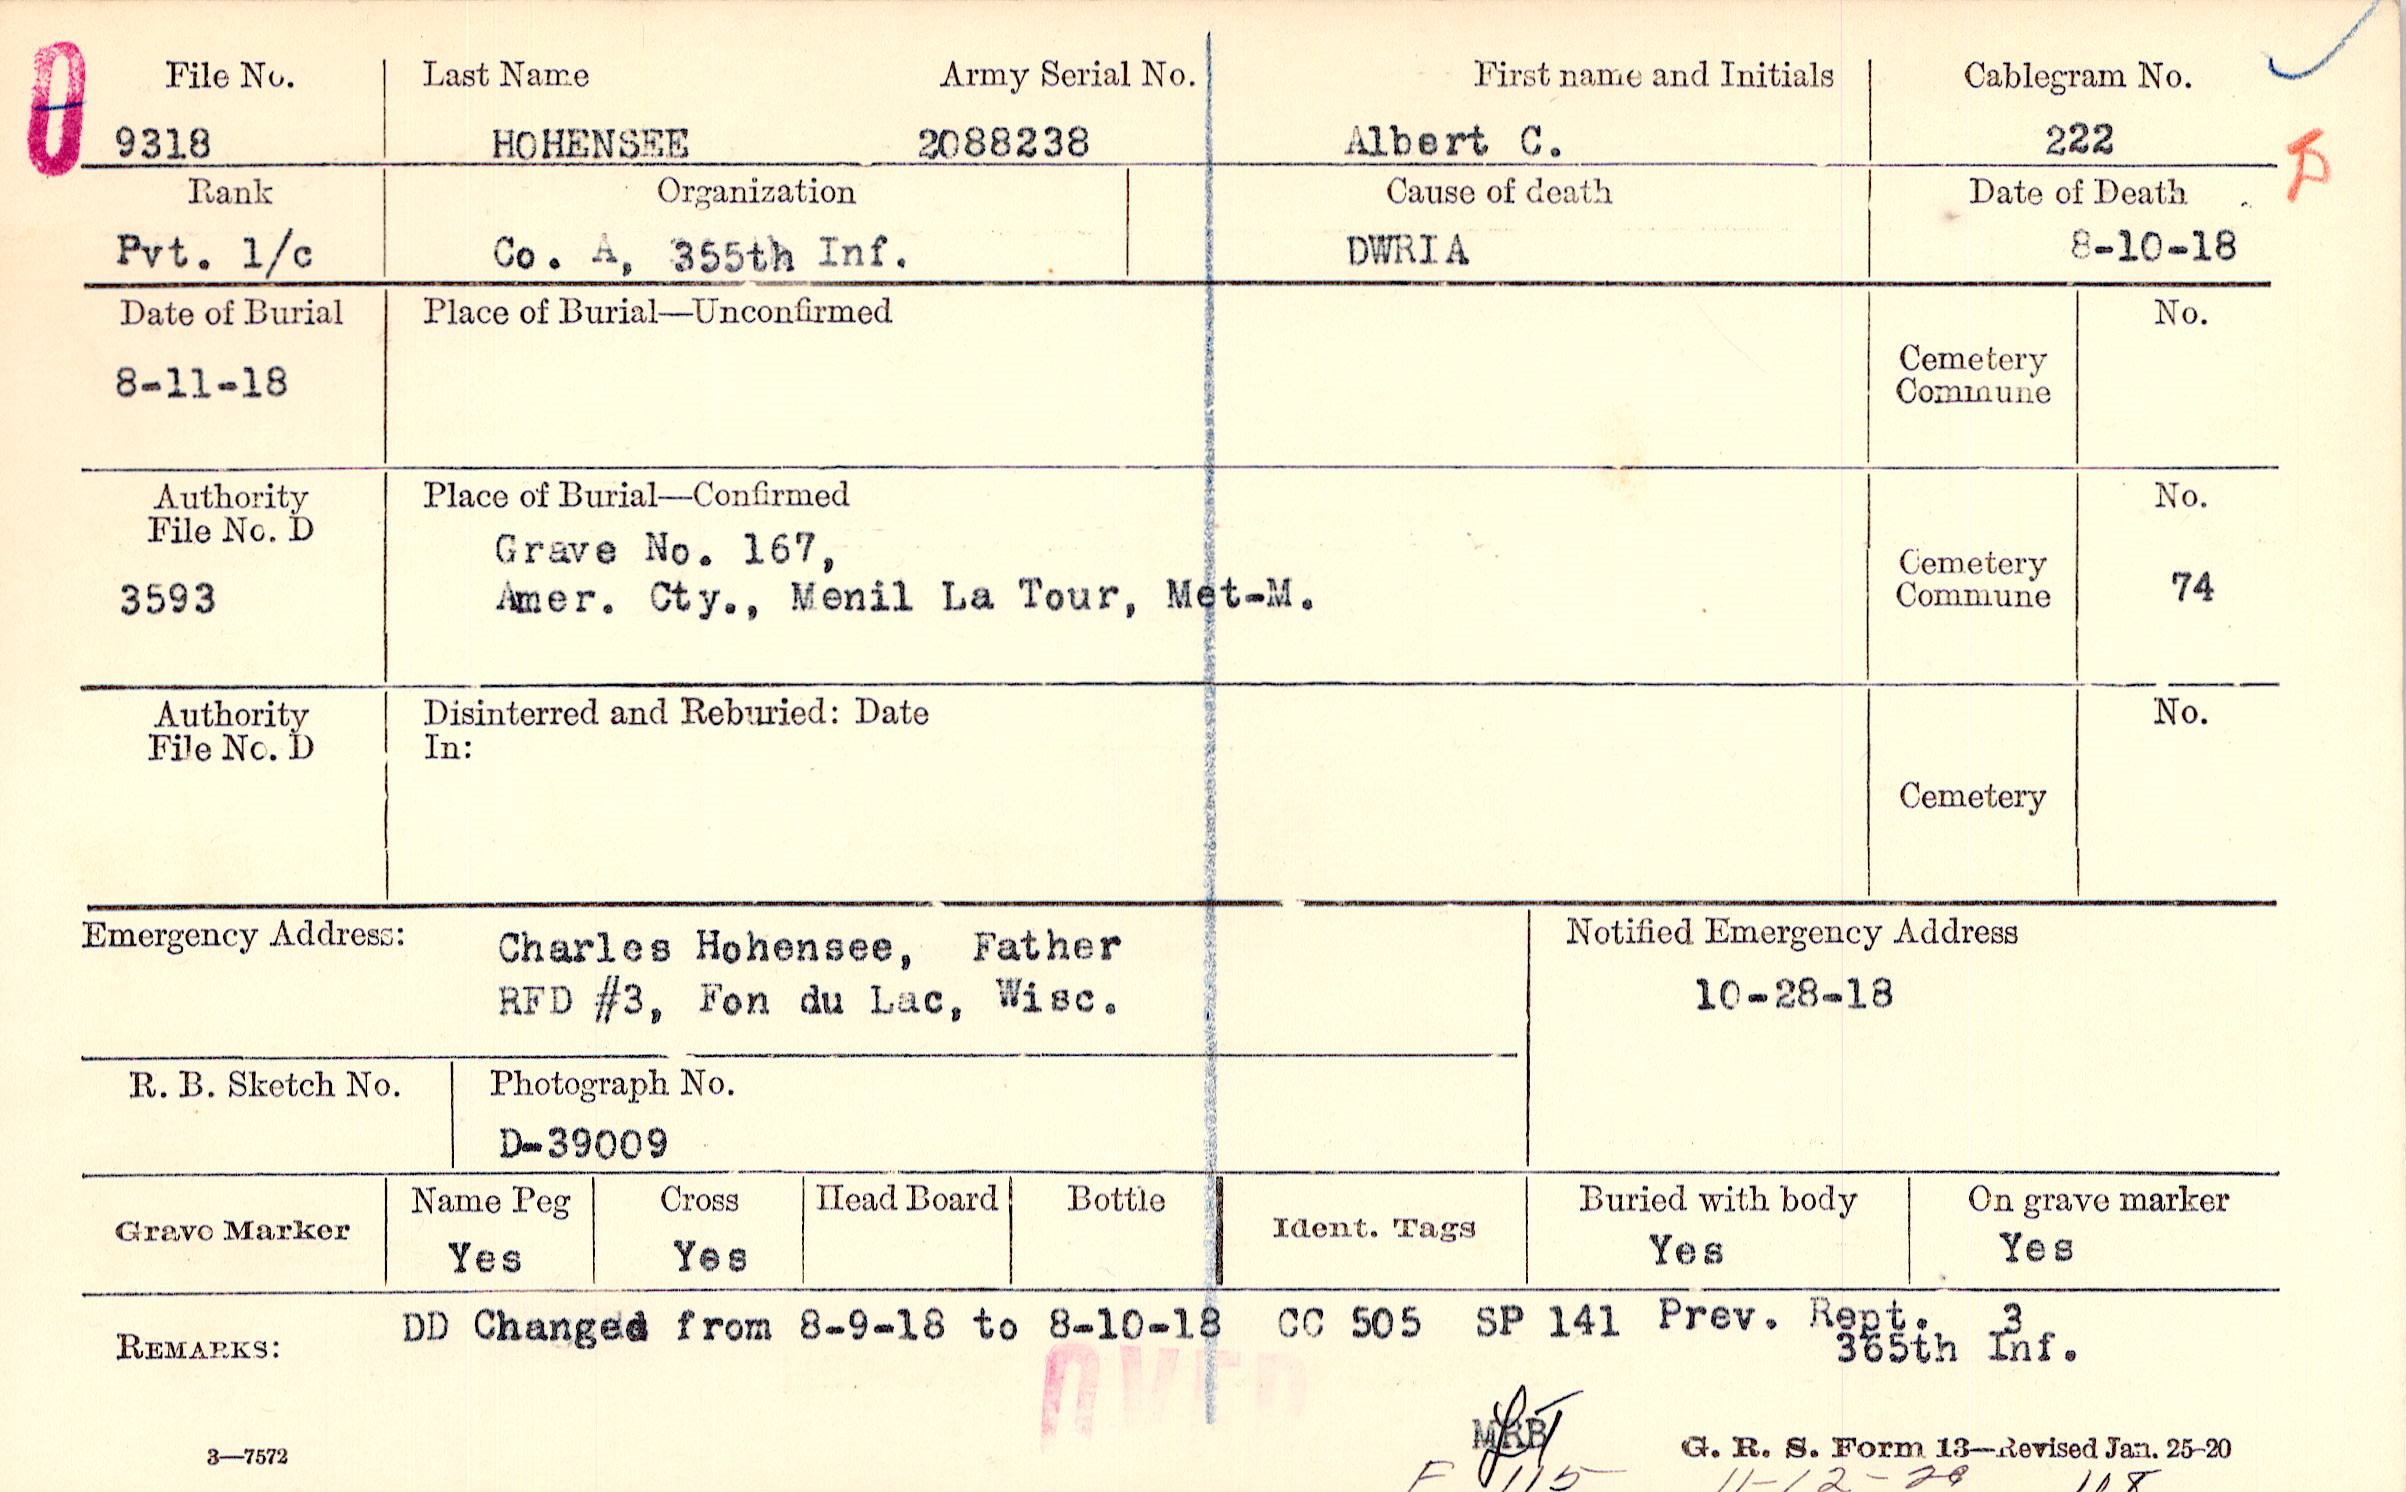 0
File No. Last Name Army Serial No. First name and Initials Cablegram No.
9318 HOHENSEE 2088238 Albert C. 222
Rank Organization Cause of death Date of Death
Pvt. 1/c Co. A, 355th Inf. DWRIA 8-10-18
Date of Burial Place of Burial—Unconfirmed No.
8-11-18
Cemetery
Commune
Authority Place of Burial—Confirmed No.
File No. D
Grave No. 167,
3593 Amer. Cty., Menil La Tour, Met-M.
Cemetery
Commune 74
Authority Disinterred and Reburied: Date No.
File No. D In:
Cemetery
Emergency Address: Charles Hohensee, Father
RFD #3, Fon du Lac, Wisc.
Notified Emergency Address
10-28-18
R. B. Sketch No. Photograph No.
D-39009
Grave Marker Name Peg Cross Head Board Bottle Ident. Tags Buried with body On grave marker
Yes Yes Yes Yes
REMARKS: DD Changed from 8-9-18 to 8-10-18 CC 505 SP 141 Prev. Rept. 3
365th Inf.
OVER
MRB
3—7572 G. R. S. Form 13—Revised Jan. 25-20